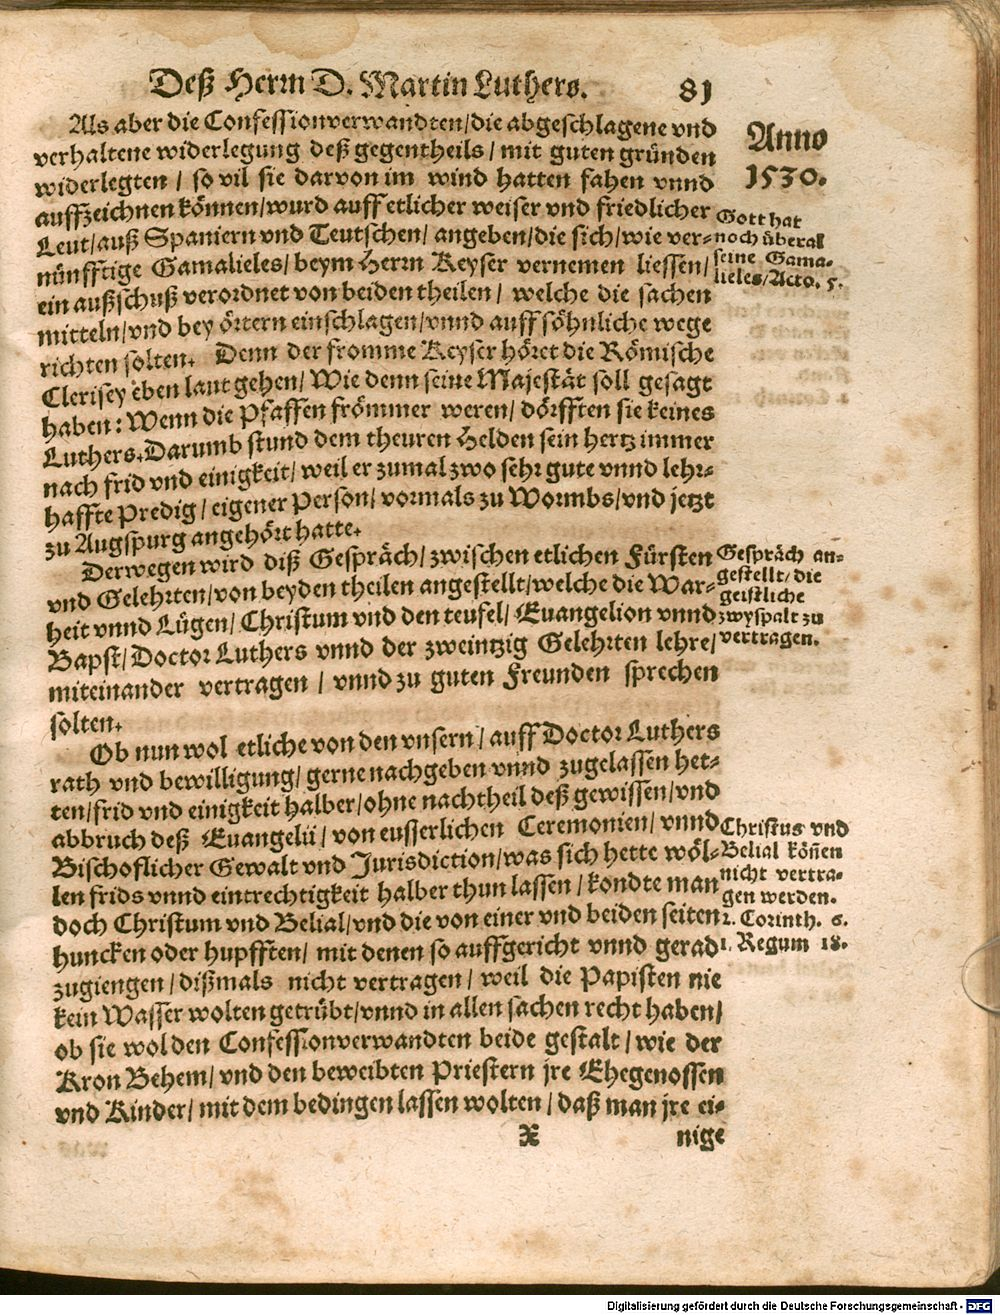 Deß Herrn D. Martin Luthers. 81
Als aber die Confessionverwandten/die abgeschlagene vnd
verhaltene widerlegung deß gegentheils/ mit guten gründen
widerlegten/ so vil sie darvon im wind hatten fahen vnnd
auffzeichnen können/wurd auff etlicher weiser vnd friedlicher
Leut/auß Spaniern vnd Teutschen/ angeben/die sich/wie ver-
nünfftige Gamalieles/ beym Herrn Keyser vernemen liessen/
ein außschuß verordnet von beiden theilen/ welche die sachen
mitteln/vnd bey örtern einschlagen/vnnd auff söhnliche wege
richten solten. Denn der fromme Keyser höret die Römische
Clerisey eben laut gehen/ Wie denn seine Majestät soll gesagt
haben: Wenn die Pfaffen frömmer weren/ dörfften sie keines
Luthers. Darumb stund dem theuren Helden sein hertz immer
nach frid vnd einigkeit/ weil er zumal zwo sehr gute vnnd lehr-
haffte Predig/ eigener Person/ vormals zu Wormbs/vnd jetzt
zu Augspurg angehört hatte.
Derwegen wird diß Gespräch/ zwischen etlichen Fürsten
vnd Gelehrten/von beyden theilen angestellt/welche die War-
heit vnnd Lügen/ Christum vnd den teufel/ Euangelion vnnd
Bapst/ Doctor Luthers vnnd der zweintzig Gelehrten lehre/
miteinander vertragen/ vnnd zu guten Freunden sprechen
solten.
Ob nun wol etliche von den vnsern/ auff Doctor Luthers
rath vnd bewilligung/ gerne nachgeben vnnd zugelassen het-
ten/frid vnd einigkeit halber/ohne nachtheil deß gewissen/vnd
abbruch deß Euangelii/ von eusserlichen Ceremonien/ vnnd
Bischoflicher Gewalt vnd Jurisdiction/was sich hette wöl-
len frids vnnd eintrechtigkeit halber thun lassen/ kondte man
doch Christum vnd Belial/vnd die von einer vnd beiden seiten
huncken oder hupfften/ mit denen so auffgericht vnnd gerad
zugiengen/ dißmals nicht vertragen/ weil die Papisten nie
kein Wasser wolten getrübt/vnnd in allen sachen recht haben/
ob sie wol den Confessionverwandten beide gestalt/ wie der
Kron Behem/ vnd den beweibten Priestern jre Ehegenossen
vnd Kinder/ mit dem bedingen lassen wolten/ daß man jre ei-
X nige
Anno
1530.
Gott hat
noch überal
seine Gama-
lieles/Acto. 5.
Gespräch an-
gestellt/die
geistliche
zwyspalt zu
vertragen.
Christus vnd
Belial köñen
nicht vertra-
gen werden.
2. Corinth. 6.
1. Regum 18.
Digitalisierung gefördert durch die Deutsche Forschungsgemeinschaft - DFG